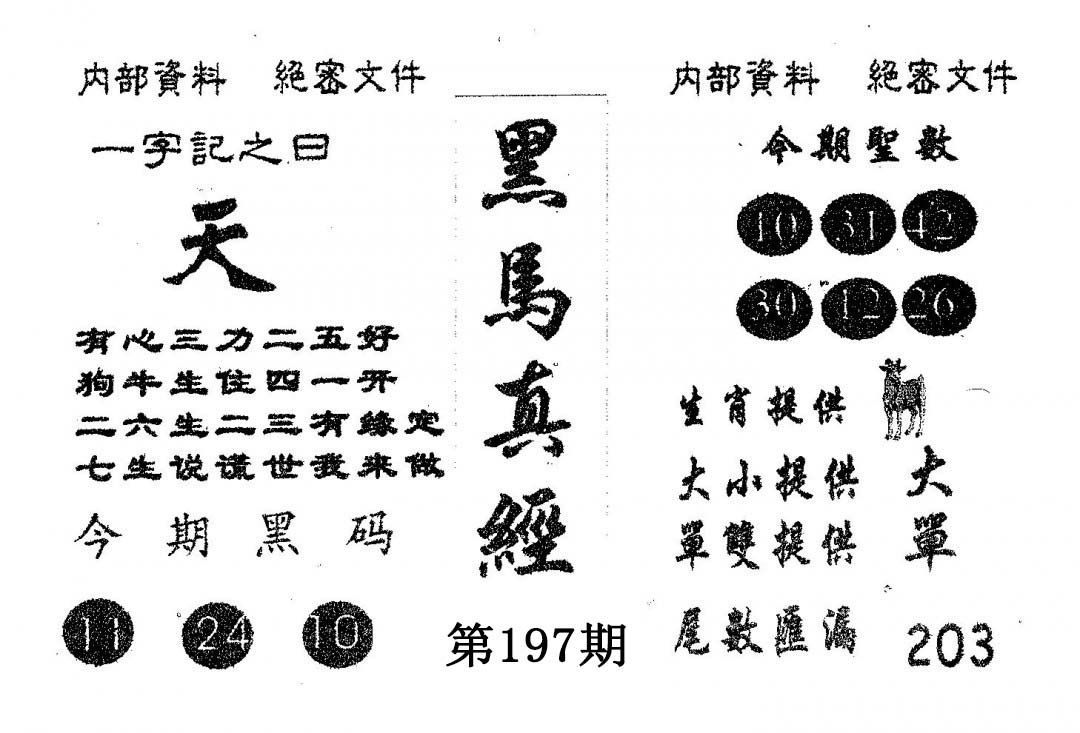 内部資料 絕密文件
一字記之曰
天
有心三力二五好
狗牛生住四一开
二六生二三有缘定
七生说谎世我来做
今期黑码
11 24 10
黑馬真經
第197期
内部資料 絕密文件
今期聖數
10 31 42
30 12 26
生肖提供
大小提供 大
單雙提供 單
尾數匯漏 203